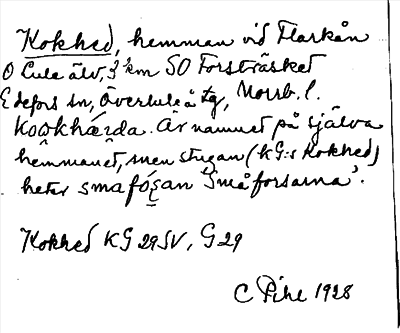 Kokhed, hemman vid Flarkån
O Lule älv, 3 km SO Forsträsket
Edefors sn, Överluleå tg, Norrb. l.
kookhæida. Är namnet på själva
hemmanet, men stugan (kG:s Kokhed)
heter smafósan 'Småforsarna'.
Kokhed KG 29 SV, G 29
C Pihl 1928